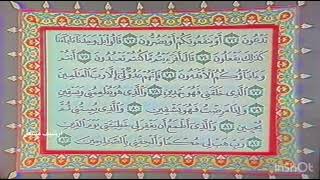 تَدْعُونَ ﴿٧٢﴾ أَوْ يَنفَعُونَكُمْ أَوْ يَضُرُّونَ ﴿٧٣﴾ قَالُوا۟ بَلْ وَجَدْنَآ ءَابَآءَنَا
كَذَٰلِكَ يَفْعَلُونَ ﴿٧٤﴾ قَالَ أَفَرَءَيْتُم مَّا كُنتُمْ تَعْبُدُونَ ﴿٧٥﴾ أَنتُمْ
وَءَابَآؤُكُمُ ٱلْأَقْدَمُونَ ﴿٧٦﴾ فَإِنَّهُمْ عَدُوٌّ لِّىٓ إِلَّا رَبَّ ٱلْعَٰلَمِينَ
﴿٧٧﴾ ٱلَّذِى خَلَقَنِى فَهُوَ يَهْدِينِ ﴿٧٨﴾ وَٱلَّذِى هُوَ يُطْعِمُنِى وَيَسْقِينِ
﴿٧٩﴾ وَإِذَا مَرِضْتُ فَهُوَ يَشْفِينِ ﴿٨٠﴾ وَٱلَّذِى يُمِيتُنِى ثُمَّ
يُحْيِينِ ﴿٨١﴾ وَٱلَّذِىٓ أَطْمَعُ أَن يَغْفِرَ لِى خَطِيٓـَٔتِى يَوْمَ ٱلدِّينِ
﴿٨٢﴾ رَبِّ هَبْ لِى حُكْمًا وَأَلْحِقْنِى بِٱلصَّٰلِحِينَ ﴿٨٣﴾
InShot